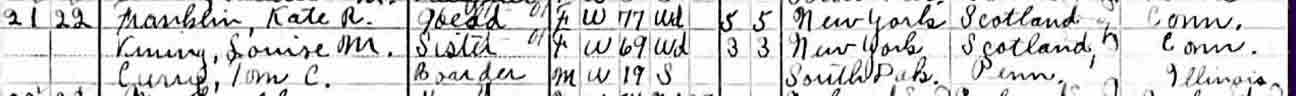 21 22 Franklin, Kate R. Head F W 77 Wd 5 5 New York Scotland Conn.
Louise M. Sister F W 69 Wd 3 3 New York Scotland Conn.
Tom C. Boarder M W 19 S South Dak. Penn. Illinois